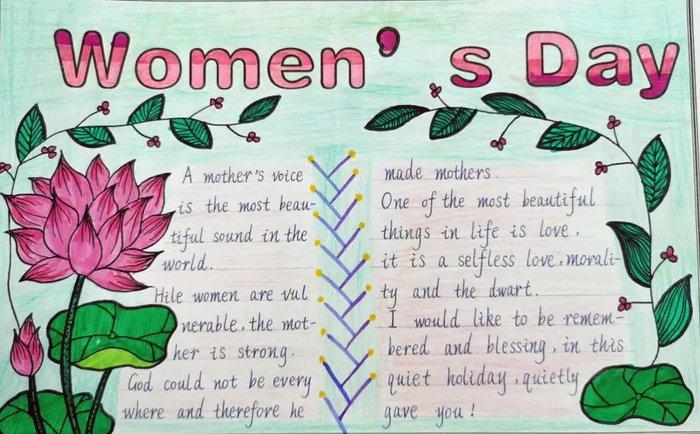 Women's Day
A mother's voice
is the most beau-
tiful sound in the
world.
Hile women are vul
nerable, the mot-
her is strong.
God could not be every
where and therefore he
made mothers.
One of the most beautiful
things in life is love,
it is a selfless love, morali-
ty and the dwart.
I would like to be remem-
bered and blessing, in this
quiet holiday, quietly
gave you!